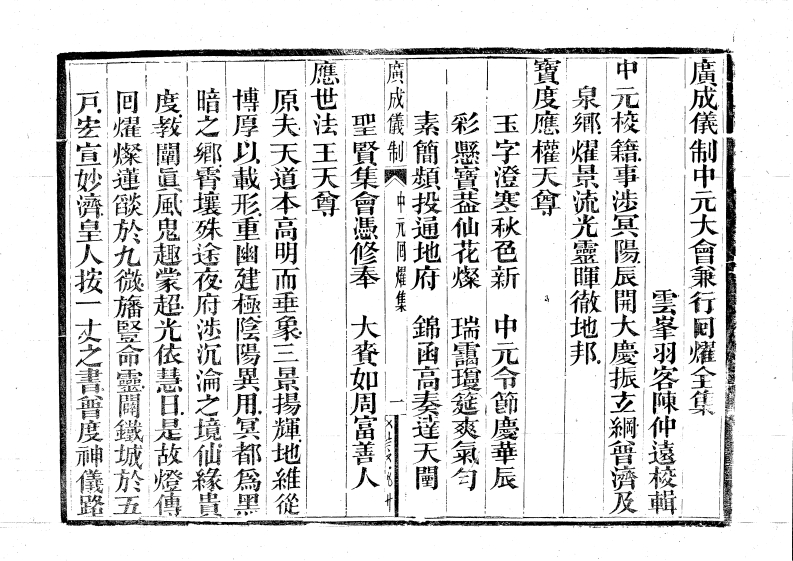 廣成儀制中元大會兼行囘燿全集
雲峯羽客陳仲遠校輯
中元校籍事涉冥陽辰開大慶振立綱會濟及
泉鄉燿景流光靈暉徹地邦
寶度應權天尊
玉字澄寒秋色新　中元令節慶華辰
彩懸寶葢仙花燦　瑞靄瓊筵爽氣勻
素簡頻投通地府　錦函高奏達天閽
聖賢集會憑修奉　大賚如周富善人
廣成儀制　中元囘燿集　一
應世法王天尊
原夫天道本高明而垂象三景揚輝地維從
博厚以載形重幽建極陰陽異用冥都爲黑
暗之鄉霄壤殊途夜府涉沉淪之境仙緣貴
度教闡眞風鬼趣蒙超光依慧日是故燈傳
囘燿燦蓮燄於九微旛豎命靈闢鐵城於五
戸宏宣妙濟皇人按一丈之書普度神儀路